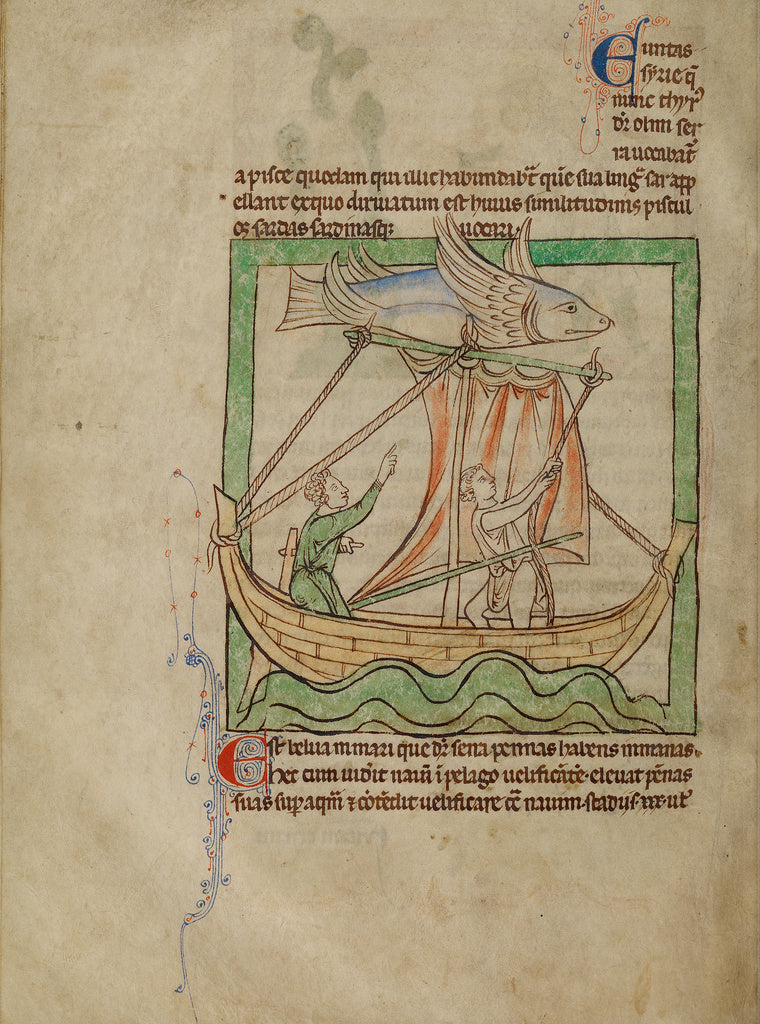 Euntas
syrie q̄
nunc thyr᷒
dr̄ olim ser
ra uocabat̄
a pisce quodam qui illic habundab̄t que͂ sua ling̃ sar app
ellant ex quo diriuatum est huius similitudinis piscul
os sardas sardinasq; uocari.
Est belua in mari que dr̄ serra pennas habens inmanas.
hec cum uiderit nauē ī pelago uelificātē eleuat pēnas
suas sup̄ aqm̄ ⁊ cōtendit uelificare cē nauim. stadijs. xxx. ul̄